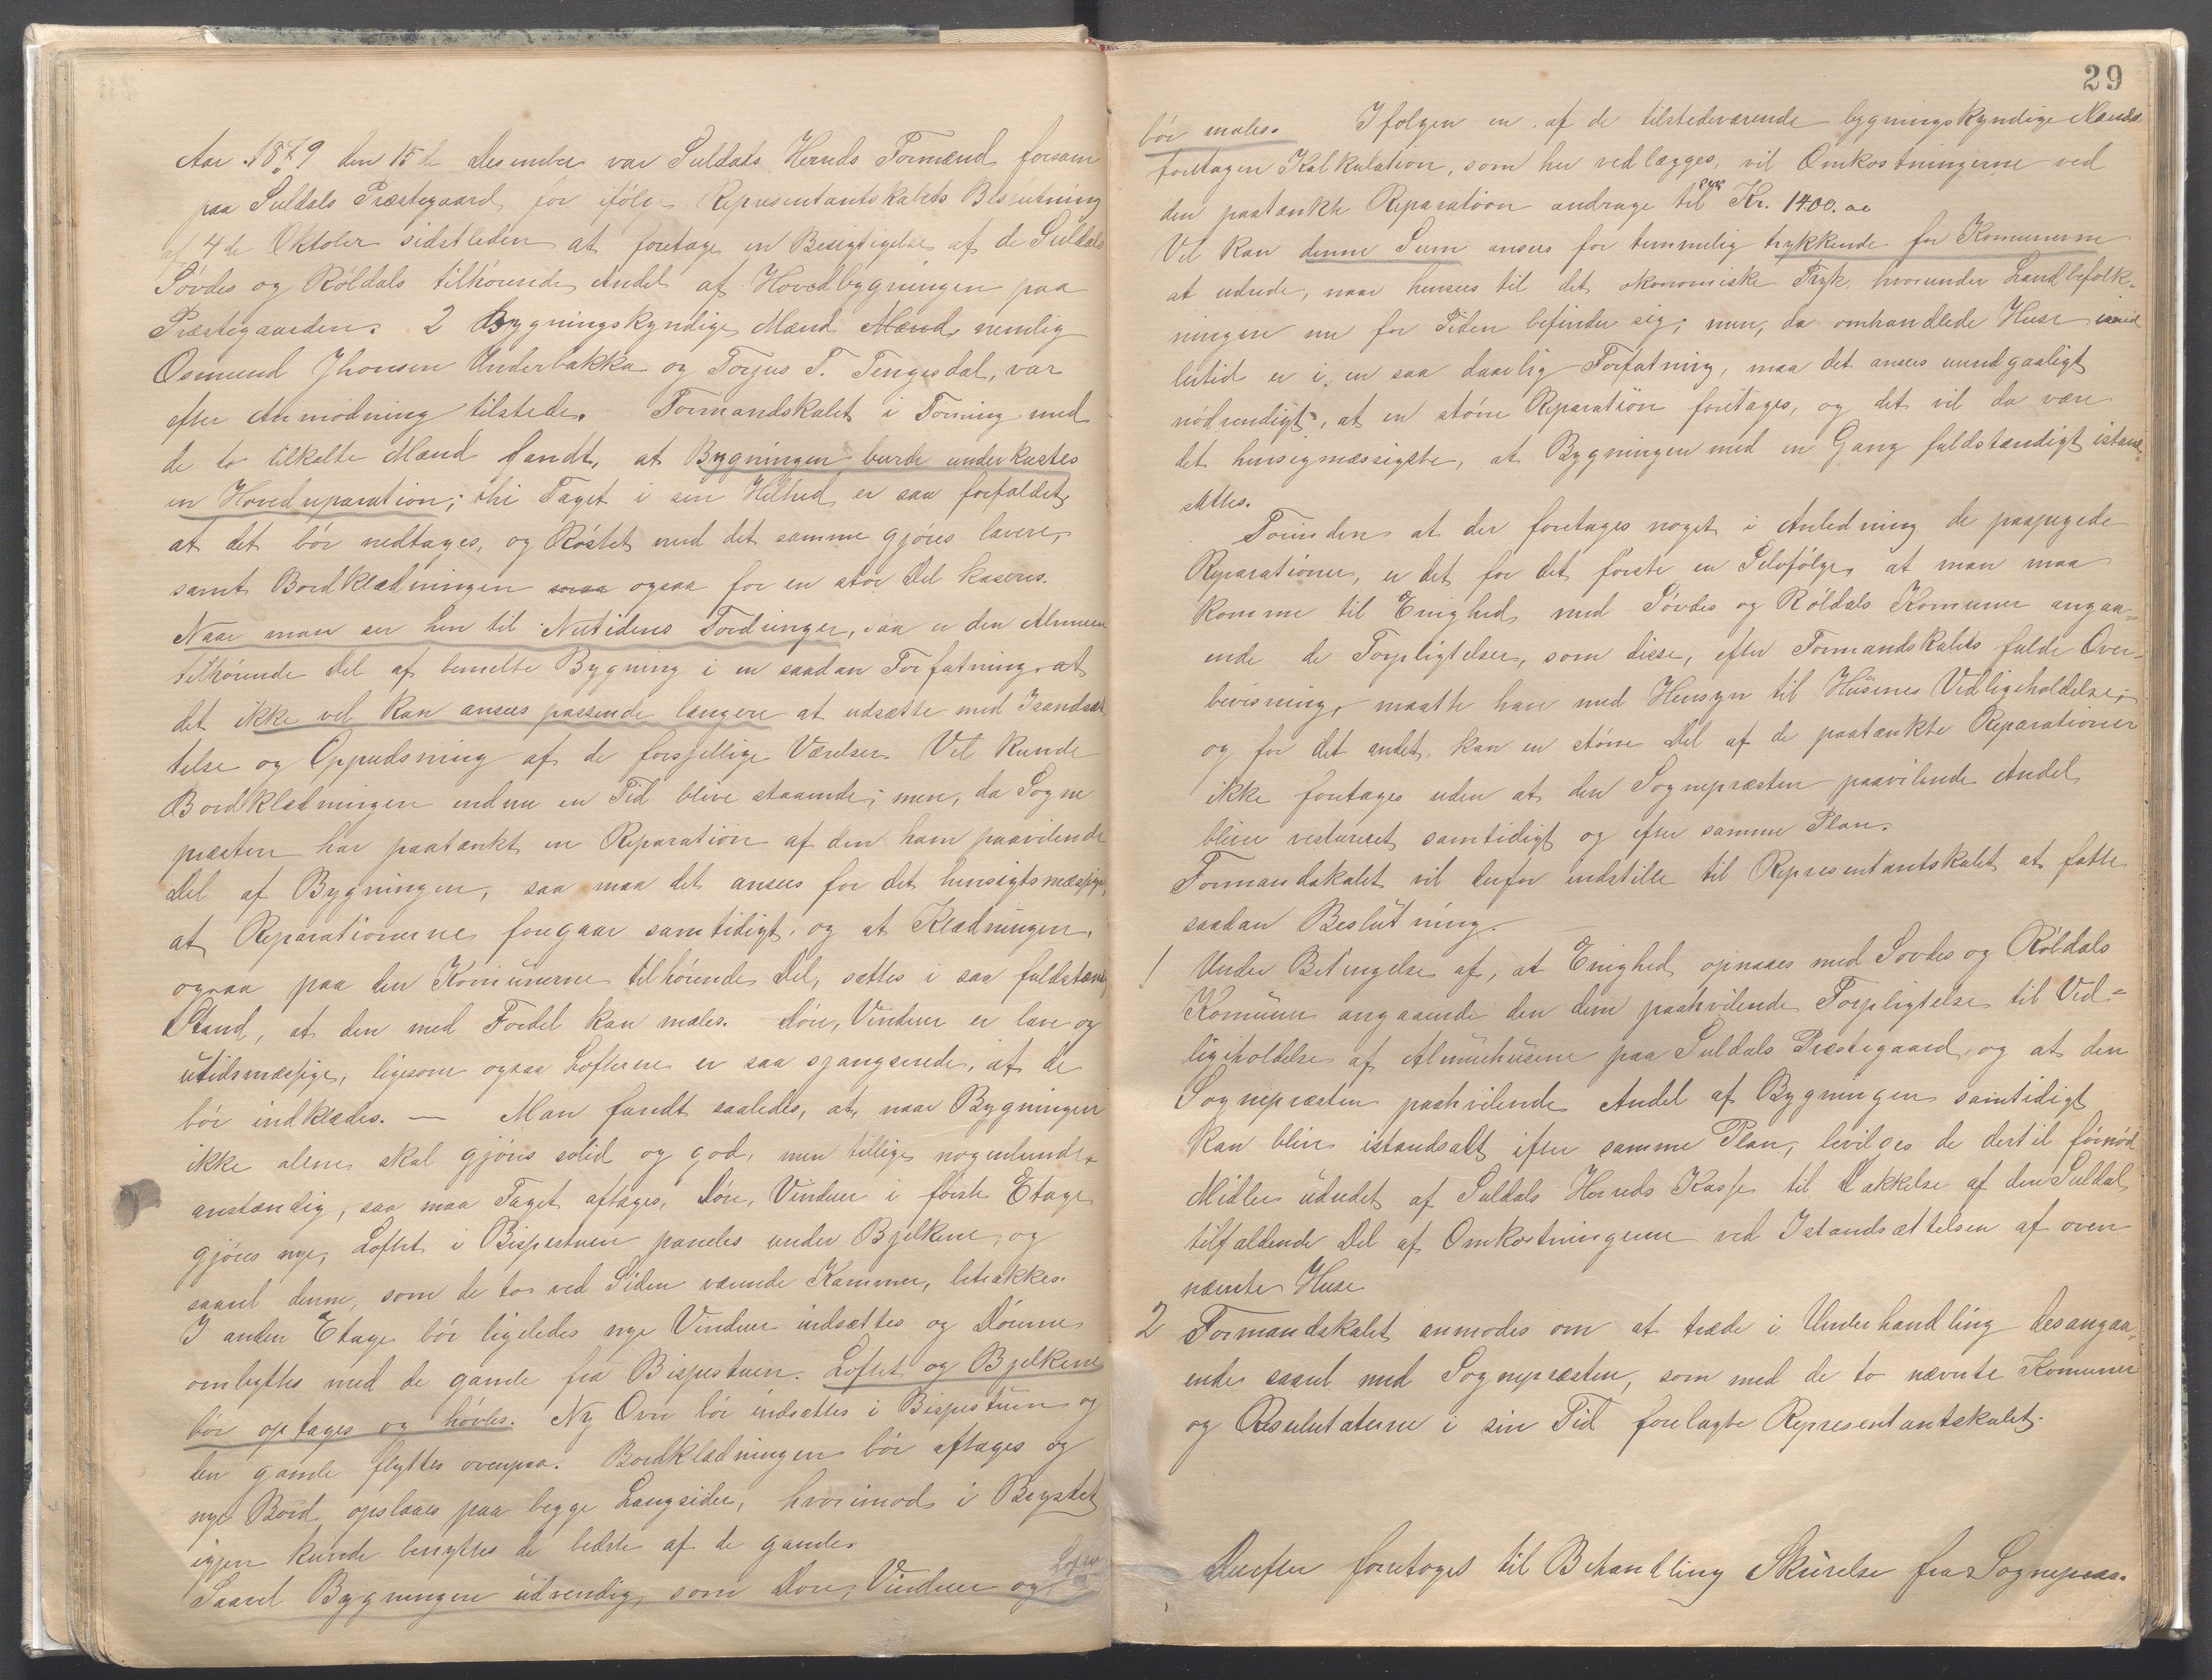 Aar 1879 den 15de Desember var Suldals Herreds Formænd forsam
paa Suldals Præstegaard for ifølge Representantskabets Beslutning
af 4de Oktober sidstleden at foretage en Besigtigelse af de Suldals
Søvdes og Røldals tilhørende Andel af Hovedbygningen paa
Præstegaarden. 2 Bygningskyndige Mænd Mænd nemlig
Osmund Jhonsen Underbakka og Torjus T. Tengesdal, var
efter Anmodning tilstede. Formandskabet i Forening med
de to tilkalte Mænd fandt, at Bygningen burde underkastes
en Hovedreparation; thi Taget i sin Helhed er saa forfaldet,
at det bør nedtages, og Røstet med det samme gjøres lavere,
samt Bordklædningen maa ogsaa for en stor Del kaseres.
Naar man ser hen til Nutidens Fordringer, saa er den Almuen
tilhørende Del af bemelte Bygning i en saadan Forfatning, at
det ikke vel kan ansees passende længere at udsætte med Isandsæt
telse og Oppudsning af de forsjellige Værelser. Vel kunde
Bordklædningen endnu en Tid blive staaende; men, da Sogne
præsten har paatænkt en Reparation af den ham paavilende
Del af Bygningen, saa maa det ansees for det hensigtsmæssigst,
at Reparationerne foregaar samtidigt, og at Klædningen,
ogsaa paa den Komunerne tilhørende Del, sættes i saa fuldstændig
Stand, at den med Fordel kan males. Døre, Vinduer er lave og
utidsmæssige, ligesom ogsaa Lofterne er saa sjangserede, at de
bør indklædes. — Man fandt saaledes, at, naar Bygningen
ikke alene skal gjøres solid og god, men tillige nogenlunde
anstændig, saa maa Taget aftages, Døre, Vinduer i første Etage
gjøres nye, Loftet i Bispestuen paneles under Bjelkene, og
saavel denne, som de to ved Siden værende Kammer, betrækkes.
I anden Etage bør ligeledes nye Vinduer indsættes og Dørene
ombyttes med de gamle fra Bispestuen. Loftet og Bjelkene
bør optages og høvles. Ny Ovn bør indsættes i Bispestuen og
den gamle flyttes ovenpaa. Bordklædningen bør aftages og
nye Bord opslaaes paa begge Langsider, hvorimod i Brystet
igjen kunde benyttes de bedste af de gamle.
Saavel Bygningen udvendig, som Døre, Vinduer og Lofter
29
bør males. Ifølgen en af de tilstedeværende bygningskyndige Mænds
foretagen Kalkulation, som her vedlægges, vil Omkostningerne ved
den paatænkte Reparation andrage til Kr. 1400.00
Vel kan denne Sum ansees for temmelig trykkende for Komunerne
at udrede, naar hensees til det økonomiske Tryk, hvorunder Landbefolk-
ningen nu for Tiden befinder sig; men, da omhandlede Huse imid
lertid er i en saa daarlig Forfatning, maa det ansees uundgaaligt
nødvendigt, at en større Reparation foretages, og det vil da være
det hensigmæssigste, at Bygningen med en Gang fuldstændigt istand-
sættes.
Forinden at der foretages noget i Anledning de paapegede
Reparationer, er det for det første en Selvfølge, at man maa
komme til Enighed med Søvdes og Røldals Komuner angaa-
ende de Forpligtelser, som disse, efter Formandskabets fulde Over-
bevisning, maatte have med Hensyn til Husenes Vedligeholdelse;
og for det andet, kan en større Del af de paatænkte Reparationer
ikke foretages uden at den Sognepræsten paavilende Andel
bliver restaureret samtidigt og efter samme Plan.
Formandskabet vil derfor indstille til Representantskabet at fatte
saadan Beslutning.
1 Under Betingelse af, at Enighed opnaaes med Søvdes og Røldals
Komuner angaaende den dem paahvilende Forpligtelse til Ved-
ligeholdelse af Almuehusene paa Suldals Præstegaard, og at den
Sognepræsten paahvilende Andel af Bygningen samtidigt
kan blive istandsatt efter samme Plan, bevilges de dertil førnød
Midler udredet af Suldals Herreds Kasse til Dækkelse af den Suldal
tilfaldende Del af Omkostningerne ved Istandsættelsen af oven
nævnte Huse
2 Formandskabet anmodes om at træde i Underhandling desangaa-
ende saavel med Sognepræsten, som med de to nævnte Komuner
og Resultaterne i sin Tid forelagte Representantskabet.
Derefter foretoges til Behandling Skrivelse fra Sognepræ-